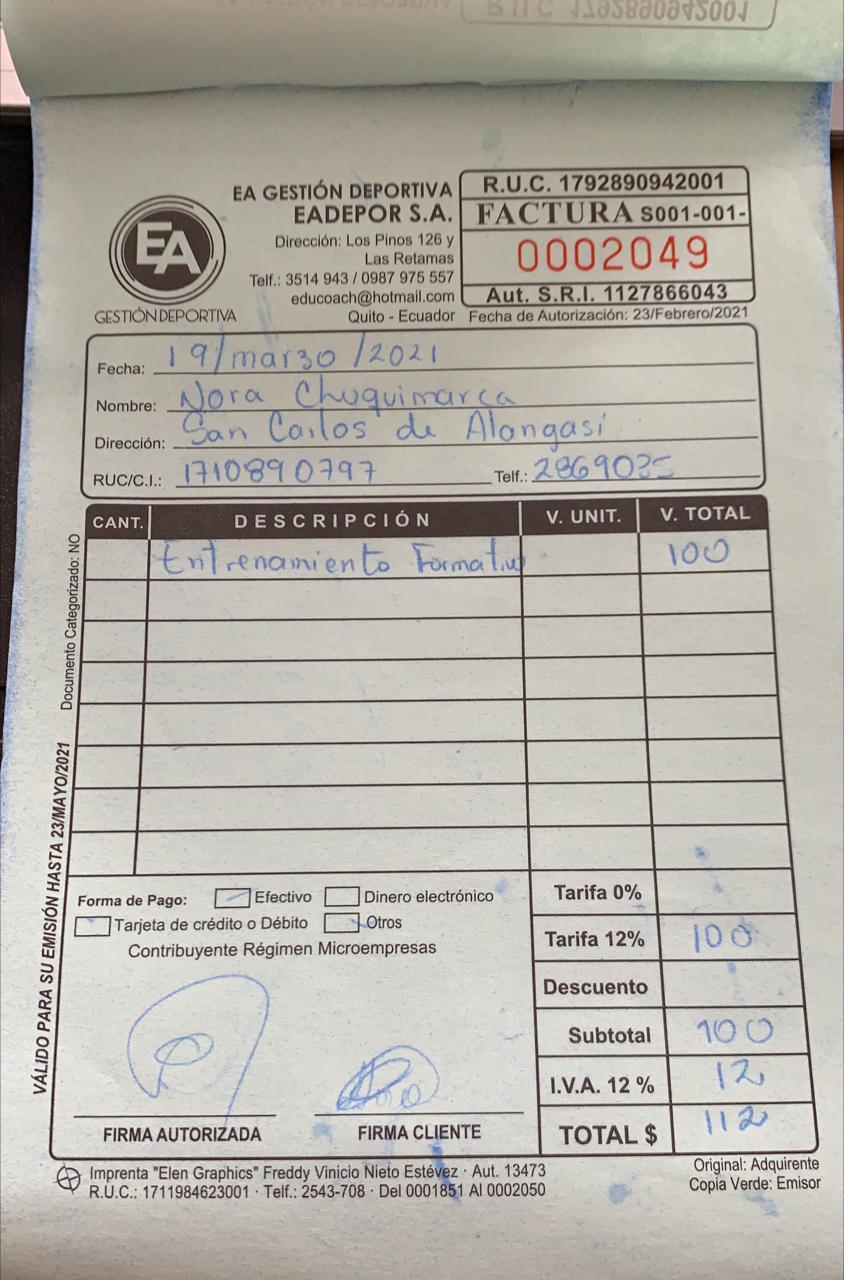 R.U.C. 1792890942001
EA GESTIÓN DEPORTIVA
EADEPOR S.A.
Dirección: Los Pinos 126 y
Las Retamas
Telf.: 3514 943 / 0987 975 557
educoach@hotmail.com
Quito - Ecuador
EA
GESTIÓN DEPORTIVA
R.U.C. 1792890942001
FACTURA S001-001-
0002049
Aut. S.R.I. 1127866043
Fecha de Autorización: 23/Febrero/2021
Fecha: 19/marzo/2021
Nombre: Nora Chuquimarca
Dirección: San Carlos de Alangasí
RUC/C.I.: 1710890797 Telf.: 2869035
CANT. DESCRIPCIÓN V. UNIT. V. TOTAL
Entrenamiento Formativo 100
Documento Categorizado: NO
VÁLIDO PARA SU EMISIÓN HASTA 23/MAYO/2021
Forma de Pago: Efectivo Dinero electrónico
Tarjeta de crédito o Débito Otros
Contribuyente Régimen Microempresas
Tarifa 0%
Tarifa 12% 100
Descuento
Subtotal 100
I.V.A. 12 % 12
TOTAL $ 112
FIRMA AUTORIZADA FIRMA CLIENTE
Imprenta "Elen Graphics" Freddy Vinicio Nieto Estévez · Aut. 13473
R.U.C.: 1711984623001 · Telf.: 2543-708 · Del 0001851 Al 0002050
Original: Adquirente
Copia Verde: Emisor